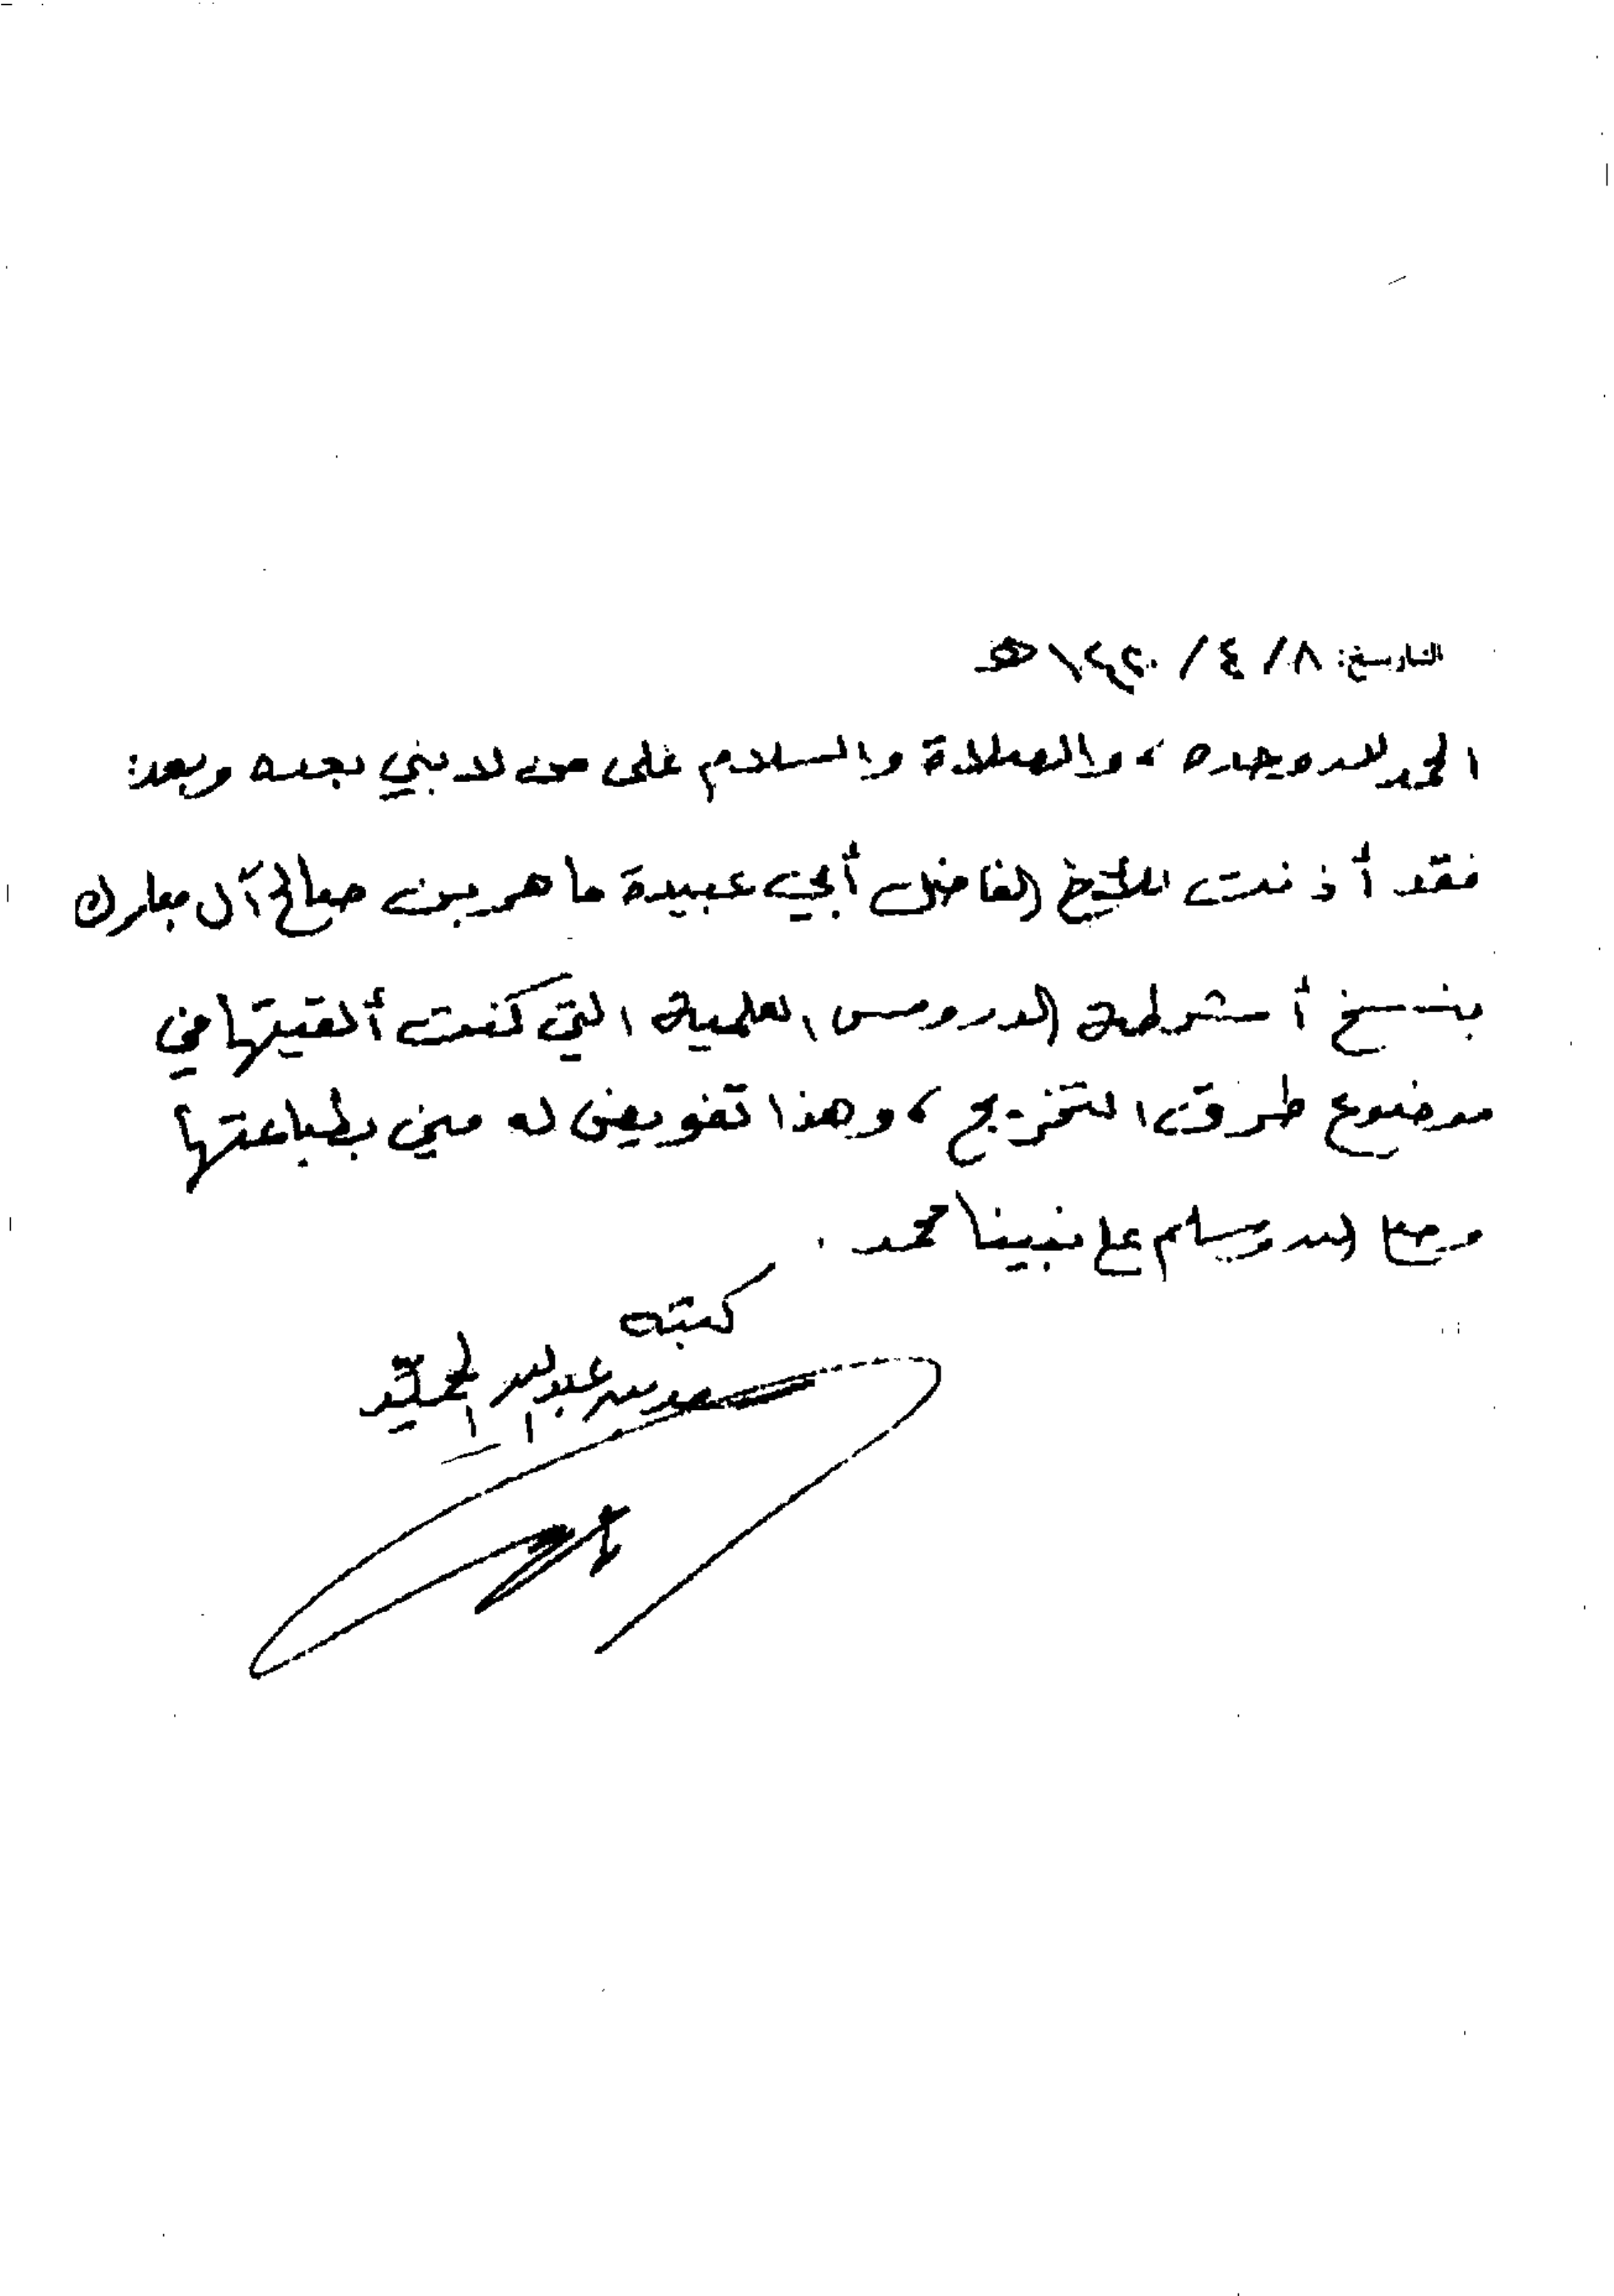 التاريخ: ٨/ ٤/ ١٤٢٠هـ
الحمد لله وحده، والصلاة والسلام على من لا نبي بعده وبعد:
فقد أذنت للأخ الفاضل أبي عبيدة ماهر بن صالح آل مبارك
بنسخ أشرطة الدروس العلمية التي كنت ألقيتها في
موضوع طرق التخريج، وهذا تفويض له مني بطباعتها
وصلى الله وسلم على نبينا محمد.
كتبه
سعد بن عبدالله الحميّد